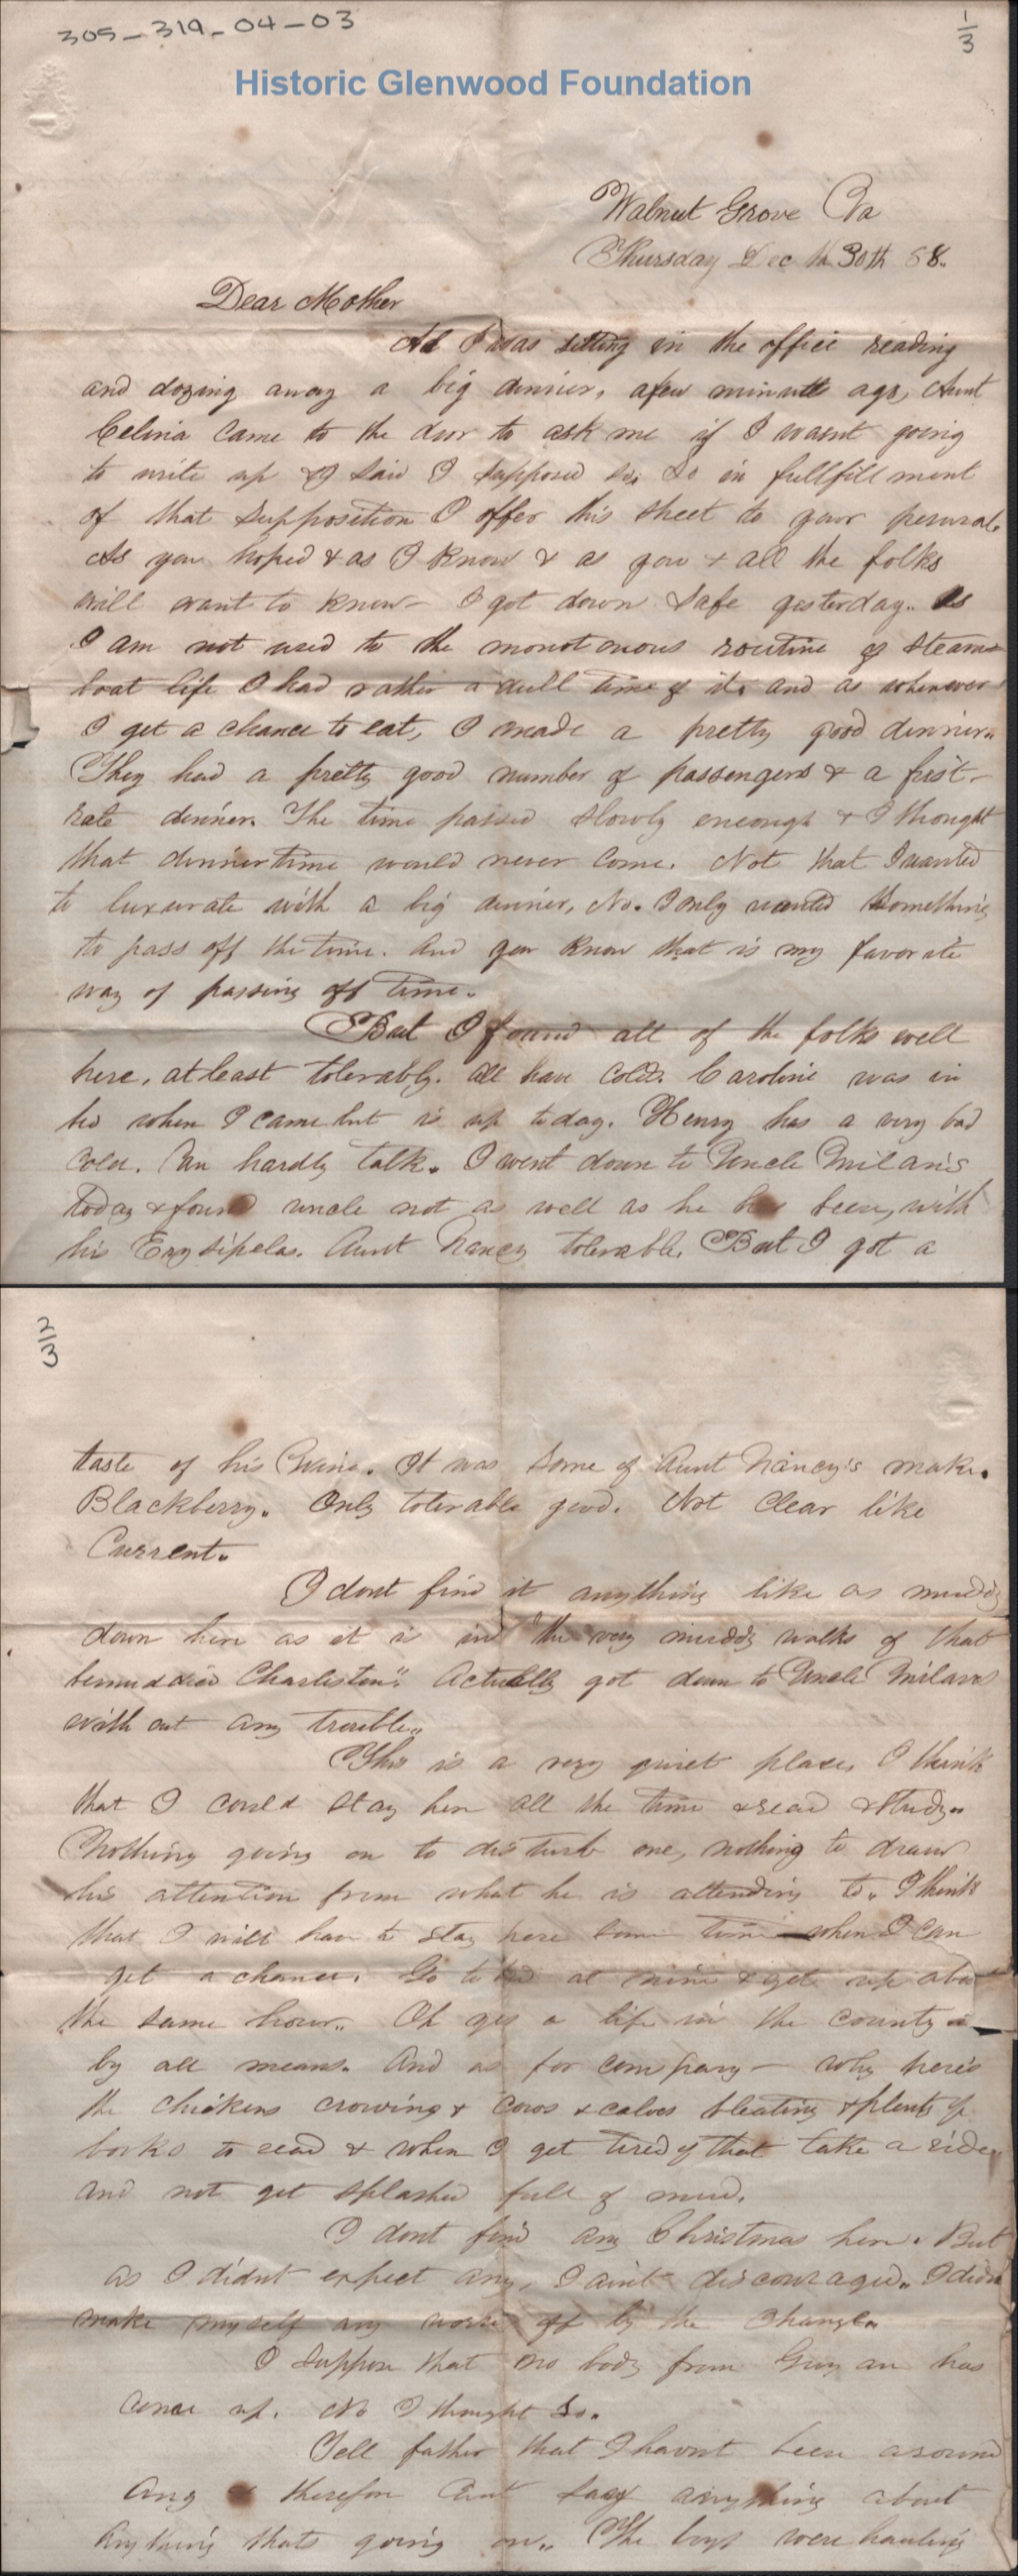 305-319-04-03
1/3
Historic Glenwood Foundation
Walnut Grove Va
Thursday Dec th 30th 58.
Dear Mother
As I was setting in the office reading
and dozing away a big dinner, a few minutes ago, Aunt
Celina came to the door to ask me if I wasnt going
to write up & I said I supposed so; So in fullfillment
of that supposition I offer this sheet to your perusal.
As you hoped & as I know & as you & all the folks
will want to know - I got down safe yesterday. As
I am not used to the monotonous routine of steam
boat life I had rather a dull time of it, and as whenever
I get a chance to eat, I made a pretty good dinner.
They had a pretty good number of passengers & a first
rate dinner. The time passed slowly eneough & I thought
that dinner time would never come. Not that I wanted
to luxurate with a big dinner, No. I only wanted something
to pass off the time. And you know that is my favorite
way of passing off time.
But I found all of the folks well
here, at least tolerably. All have colds. Caroline was in
bed when I came but is up today. Henry has a very bad
Cold. Can hardly talk. I went down to Uncle Milan's
today & found uncle not as well as he has been, with
his Erysipelas. Aunt Nancy tolerable. But I got a
2/3
taste of his Wine. It was some of Aunt Nancy's make.
Blackberry. Only tolerable good. Not clear like
Current.
I dont find it anything like as muddy
down here as it is in "the very muddy walks of that
bemuddied Charleston". Actually got down to Uncle Milans
with out any trouble.
This is a very quiet place, I think
that I could stay here all the time & read & study.
Nothing going on to disturb one, nothing to draw
his attention from what he is attending to. I think
that I will have to stay here some time when I can
get a chance. Go to bed at nine & get up abo
the same hour. Oh yes a life in the county
by all means. And as for company - why here's
the chickens crowing & cows & calves bleating & plenty of
books to read & when I get tired of that take a ride
and not get splashed full of mud.
I dont find any Christmas here. But
as I didnt expect any, I aint discouraged. I didnt
make myself any worse off by the change.
I suppose that no body from Guyan has
come up. No I thought so.
Tell father that I havnt been around
any & therefore cant say anything about
anything thats going on. The boys were hauling